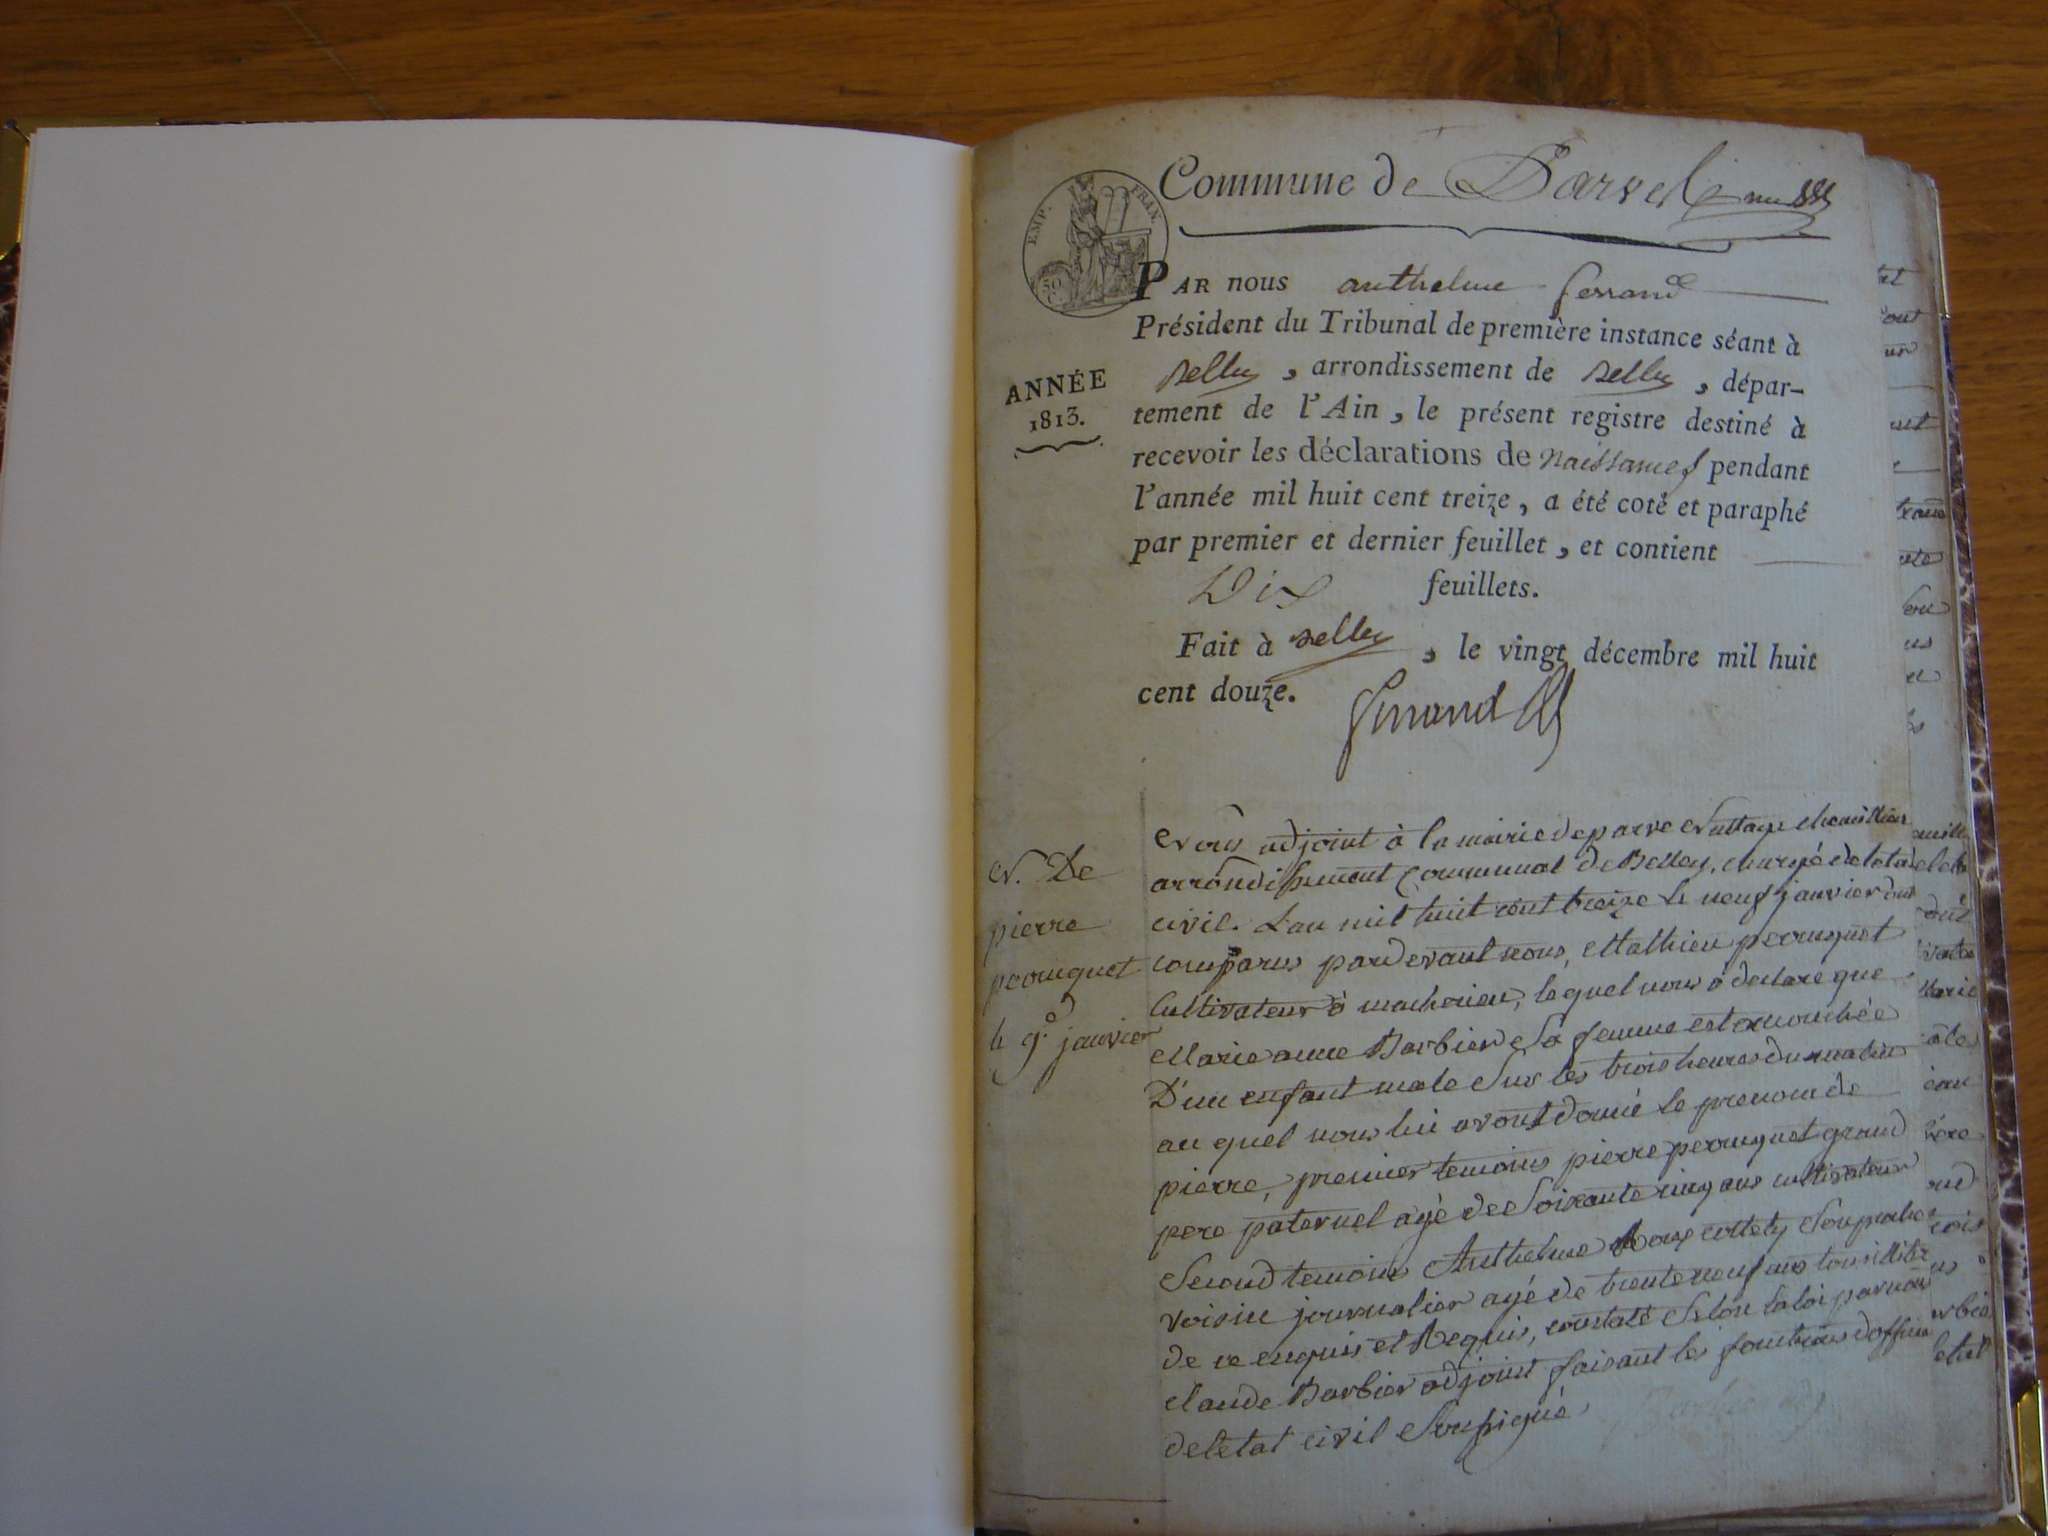 Commune de Parves
EMP. FRAN.
50
C.
PAR nous anthelme ferrand
Président du Tribunal de première instance séant à
Belley, arrondissement de Belley, dépar-
ANNÉE
1813.
tement de l'Ain, le présent registre destiné à
recevoir les déclarations de naissances pendant
l'année mil huit cent treize, a été coté et paraphé
par premier et dernier feuillet, et contient
Dix feuillets.
Fait à Belley, le vingt décembre mil huit
cent douze.
Ferrand
N. De
pierre
perruquet
le 9e janvier
Nous adjoint à la mairie de parve
arrondissement communal de Belley, chargé de letat
civil. Lan mil huit cent treize le neuf janvier
comparus pardevant nous, Mathieu perruquet
Cultivateur à lequel nous a declaré que
Marie anne Barbier Sa femme est acouchée
D'un enfant male Sur les trois heures du matin
au quel nous lui avons donné le prenom de
pierre, premier temoins pierre perruquet grand
pere paternel agé de Soixante cinq ans cultivateur
Second temoins Anthelme Roux
voisin journalier agé de trente neuf ans
de ce enquis et Requis, constaté Selon la loi par nous
claude Barbier adjoint faisant les fonctions d'officier
de letat civil Soussigné